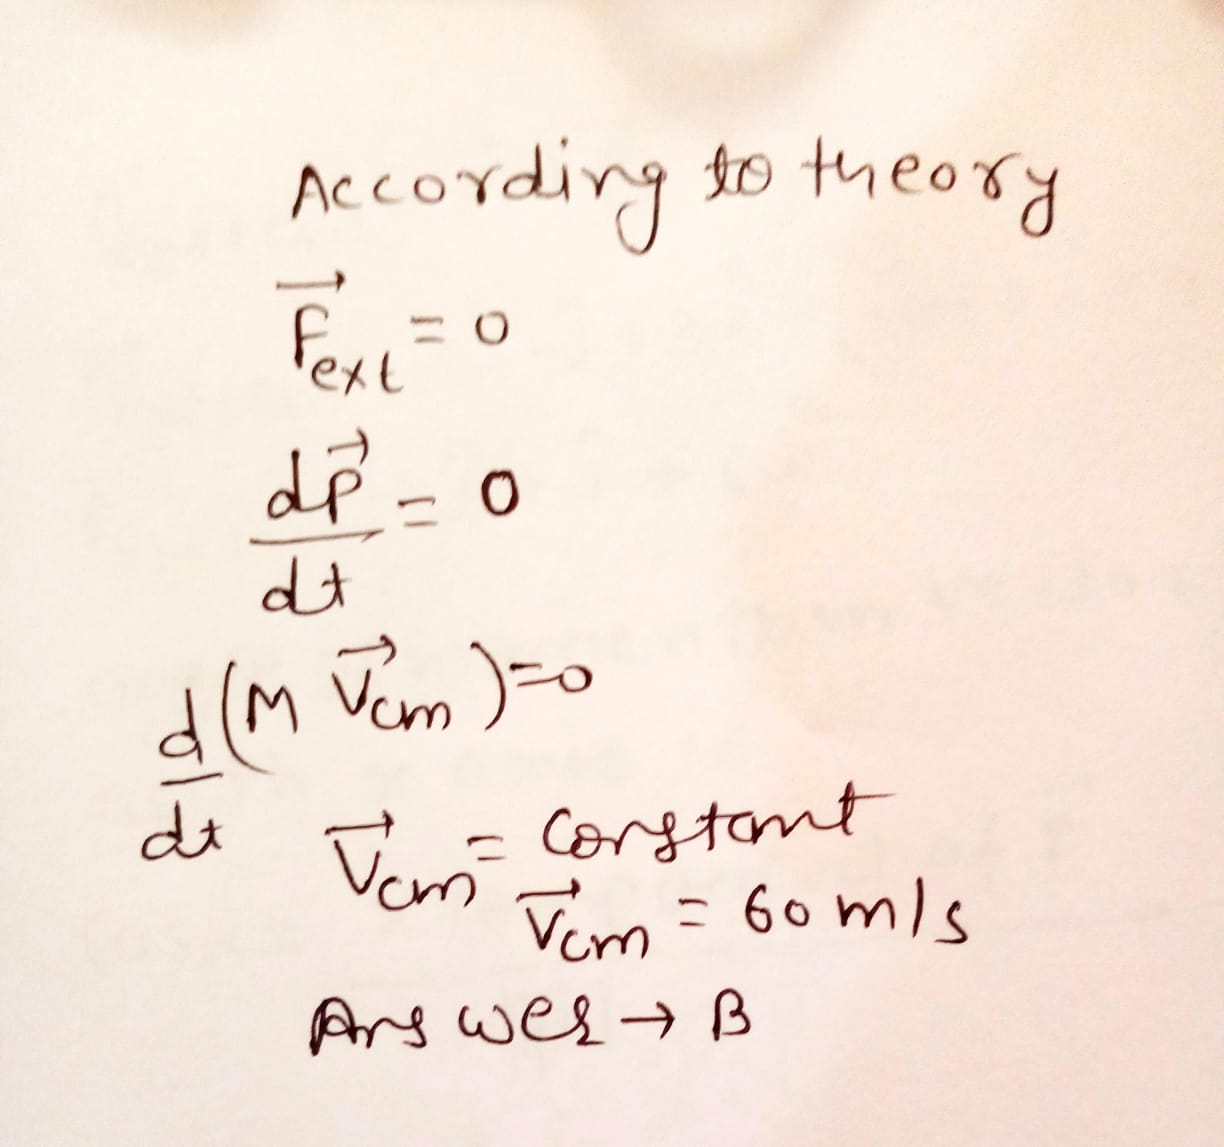 According to theory
F⃗ext = 0
dp⃗/dt = 0
d/dt (M V⃗cm) = 0
V⃗cm = Constant
V⃗cm = 60 m/s
Answer → B